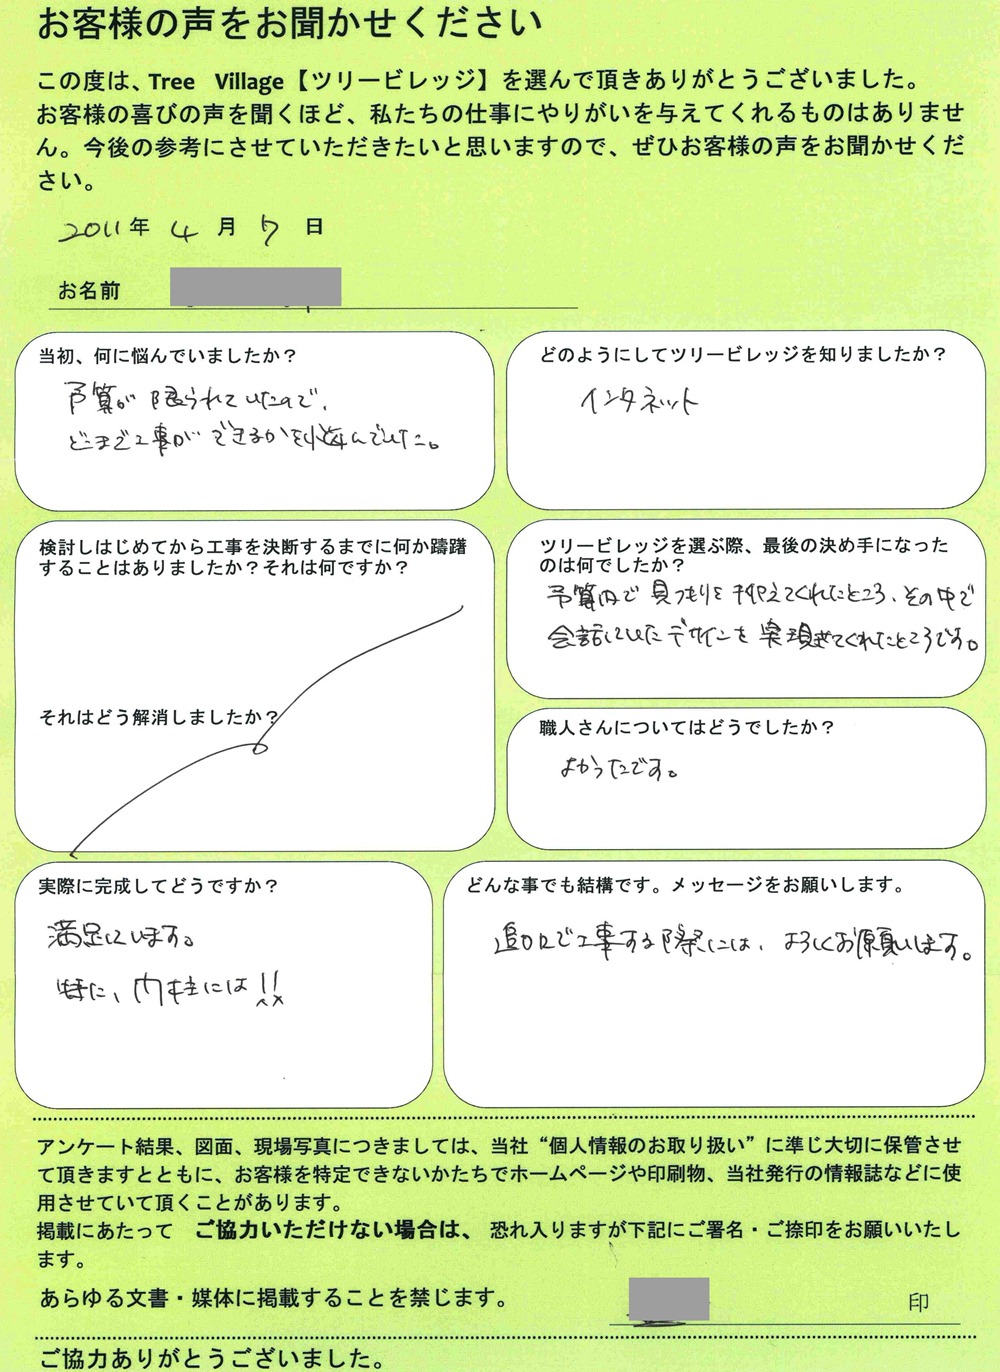 お客様の声をお聞かせください
この度は、Tree Village【ツリービレッジ】を選んで頂きありがとうございました。
お客様の喜びの声を聞くほど、私たちの仕事にやりがいを与えてくれるものはありませ
ん。今後の参考にさせていただきたいと思いますので、ぜひお客様の声をお聞かせくだ
さい。
2011年 4月 7日
お名前
当初、何に悩んでいましたか？
予算が限られていたので、
どこまで工事ができるかを悩んでいた。
どのようにしてツリービレッジを知りましたか？
インタネット
検討しはじめてから工事を決断するまでに何か躊躇
することはありましたか？それは何ですか？
それはどう解消しましたか？
ツリービレッジを選ぶ際、最後の決め手になった
のは何でしたか？
予算内で見つもりを抑えてくれたところ、その中で
会話していたデザインを実現させてくれたところです。
職人さんについてはどうでしたか？
よかったです。
実際に完成してどうですか？
満足しています。
特に、門柱には!!
どんな事でも結構です。メッセージをお願いします。
追加で工事する際には、よろしくお願いします。
アンケート結果、図面、現場写真につきましては、当社“個人情報のお取り扱い”に準じ大切に保管させ
て頂きますとともに、お客様を特定できないかたちでホームページや印刷物、当社発行の情報誌などに使
用させていて頂くことがあります。
掲載にあたって ご協力いただけない場合は、 恐れ入りますが下記にご署名・ご捺印をお願いいたし
ます。
あらゆる文書・媒体に掲載することを禁じます。 印
ご協力ありがとうございました。